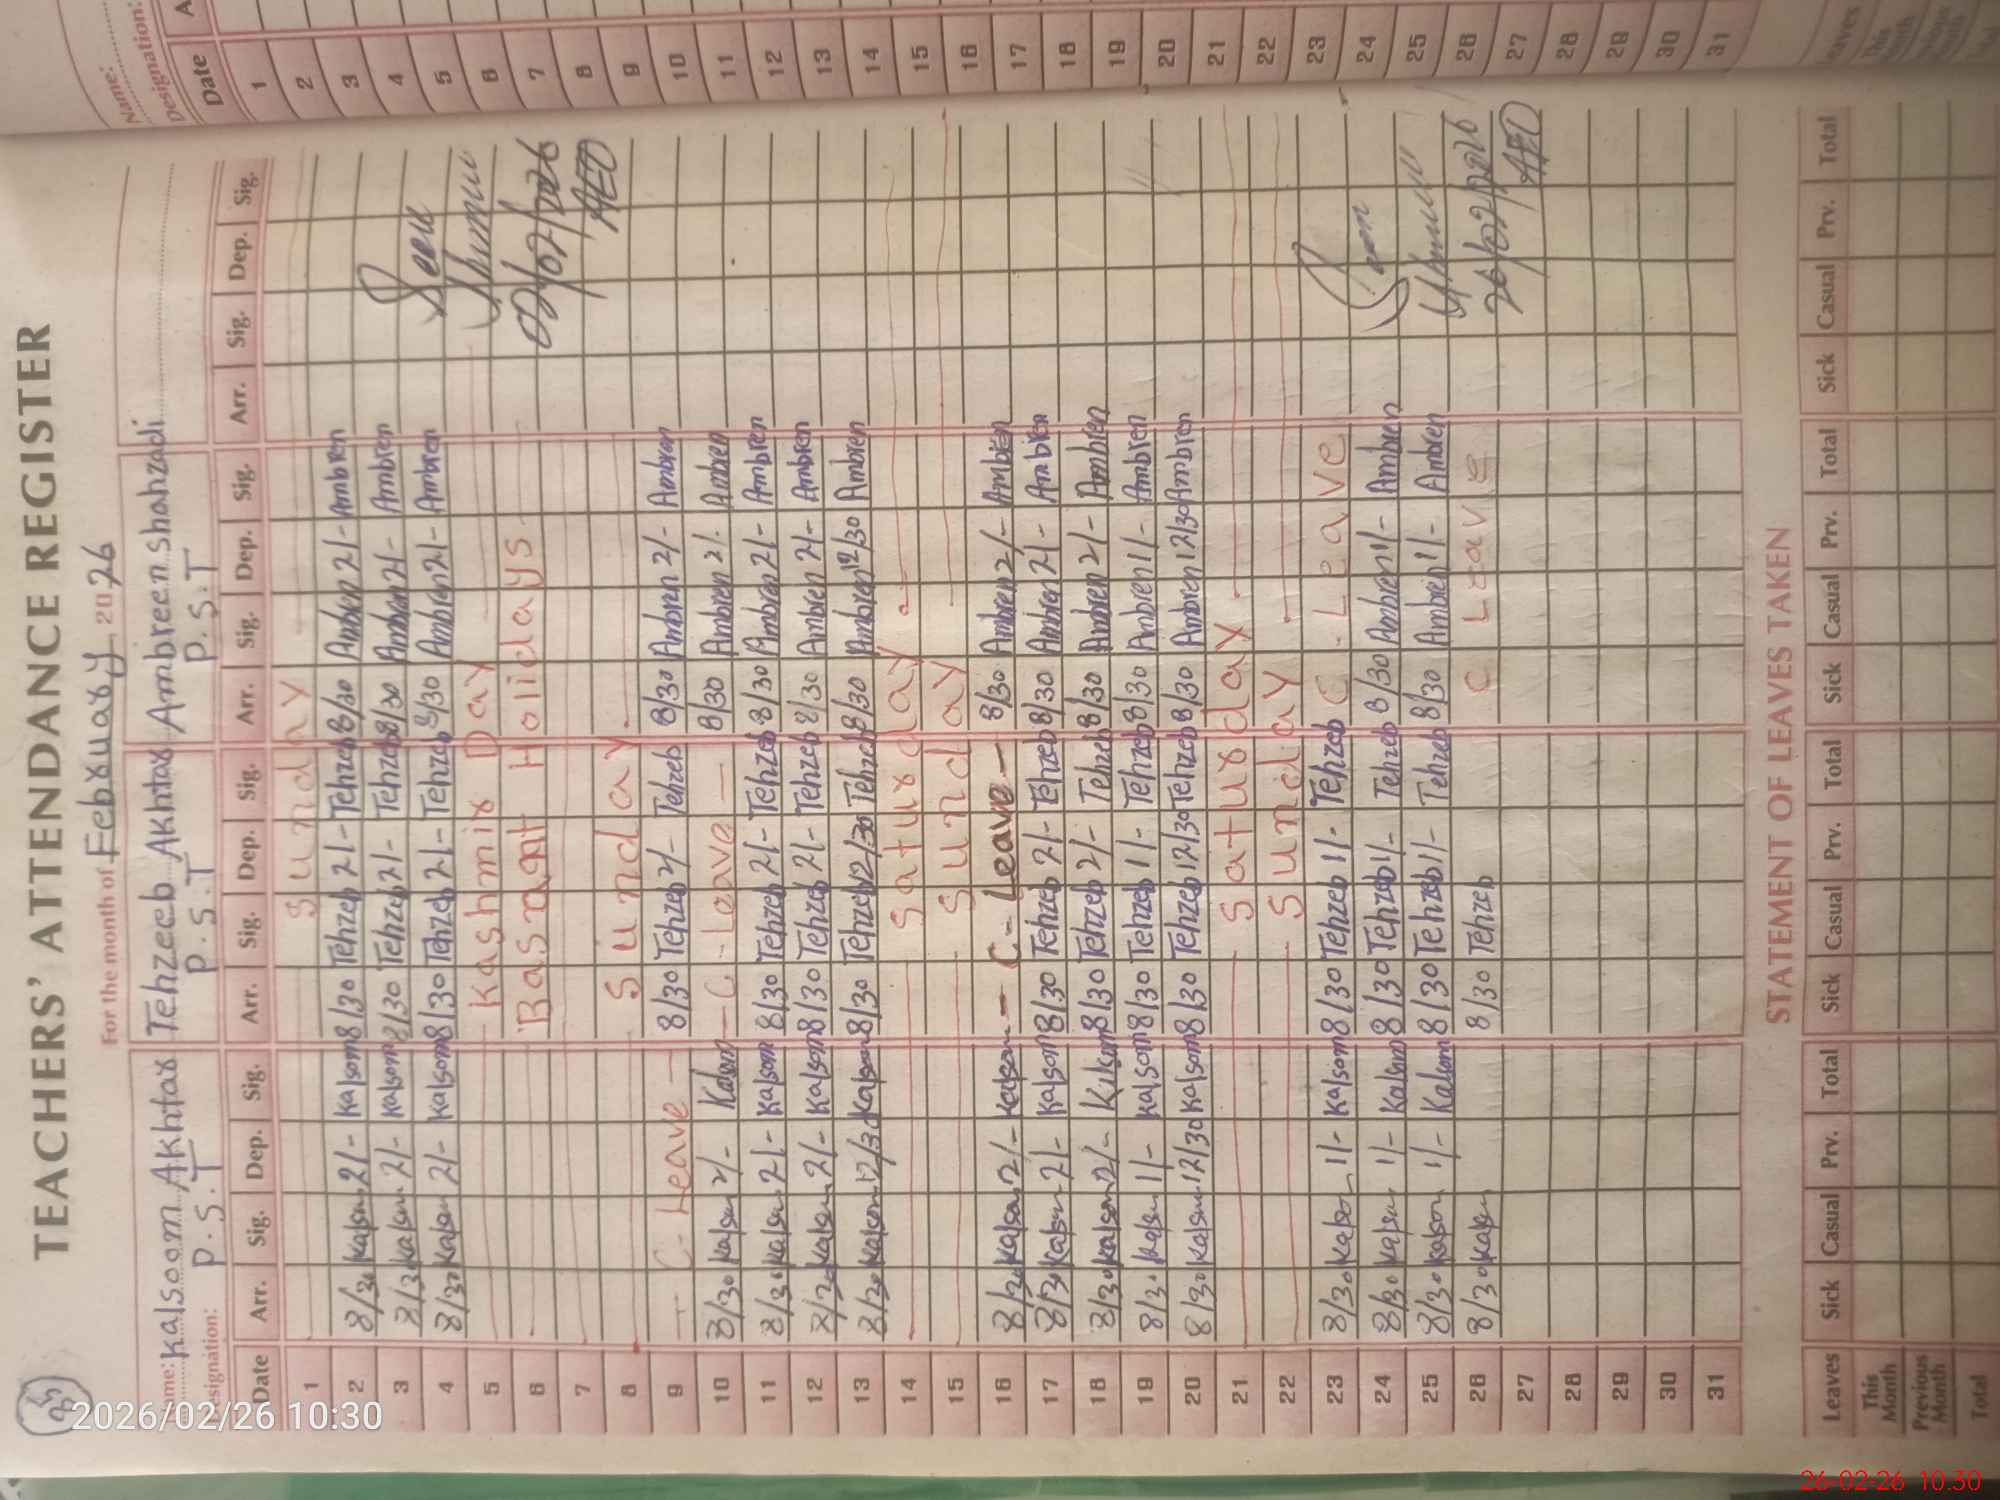 33
TEACHERS' ATTENDANCE REGISTER
For the month of February 2026
Name: Kalsoom Akhtar Tehzeeb Akhtar Ambreen shahzadi
Designation: P.S.T P.S.T P.S.T
Date Arr. Sig. Dep. Sig. Arr. Sig. Dep. Sig. Arr. Sig. Dep. Sig. Arr. Sig. Dep. Sig.
1 Sunday
2 8/30 Kalsom 2/- Kalsom 8/30 Tehzeb 2/- Tehzeb 8/30 Ambren 2/- Ambren
3 8/30 Kalsom 2/- Kalsom 8/30 Tehzeb 2/- Tehzeb 8/30 Ambren 2/- Ambren
4 8/30 Kalsom 2/- Kalsom 8/30 Tehzeb 2/- Tehzeb 8/30 Ambren 2/- Ambren
5 Kashmir Day
6 Basant Holidays
7
8 Sunday
9 C-Leave 8/30 Tehzeb 2/- Tehzeb 8/30 Ambren 2/- Ambren
10 8/30 Kalsom 2/- Kalsom - C-Leave - 8/30 Ambren 2/- Ambren
11 8/30 Kalsom 2/- Kalsom 8/30 Tehzeb 2/- Tehzeb 8/30 Ambren 2/- Ambren
12 8/30 Kalsom 2/- Kalsom 8/30 Tehzeb 2/- Tehzeb 8/30 Ambren 2/- Ambren
13 8/30 Kalsom 12/30 Kalsom 8/30 Tehzeb 12/30 Tehzeb 8/30 Ambren 12/30 Ambren
14 Saturday
15 Sunday
16 8/30 Kalsom 2/- Kalsom - C-Leave - 8/30 Ambren 2/- Ambren
17 8/30 Kalsom 2/- Kalsom 8/30 Tehzeb 2/- Tehzeb 8/30 Ambren 2/- Ambren
18 8/30 Kalsom 2/- Kalsom 8/30 Tehzeb 2/- Tehzeb 8/30 Ambren 2/- Ambren
19 8/30 Kalsom 1/- Kalsom 8/30 Tehzeb 1/- Tehzeb 8/30 Ambren 1/- Ambren
20 8/30 Kalsom 12/30 Kalsom 8/30 Tehzeb 12/30 Tehzeb 8/30 Ambren 12/30 Ambren
21 Saturday
22 Sunday
23 8/30 Kalsom 1/- Kalsom 8/30 Tehzeb 1/- Tehzeb C. Leave
24 8/30 Kalsom 1/- Kalsom 8/30 Tehzeb 1/- Tehzeb 8/30 Ambren 1/- Ambren
25 8/30 Kalsom 1/- Kalsom 8/30 Tehzeb 1/- Tehzeb 8/30 Ambren 1/- Ambren
26 8/30 Kalsom 8/30 Tehzeb C Leave
27
28
29
30
31
02/02/2026
AEO
26/02/2026
AEO
STATEMENT OF LEAVES TAKEN
Leaves Sick Casual Prv. Total Sick Casual Prv. Total Sick Casual Prv. Total Sick Casual Prv. Total
This Month
Previous Month
Total
Name:
Designation:
Date A
1
2
3
4
5
6
7
8
9
10
11
12
13
14
15
16
17
18
19
20
21
22
23
24
25
26
27
28
29
30
31
2026/02/26 10:30
26-02-26 10:30